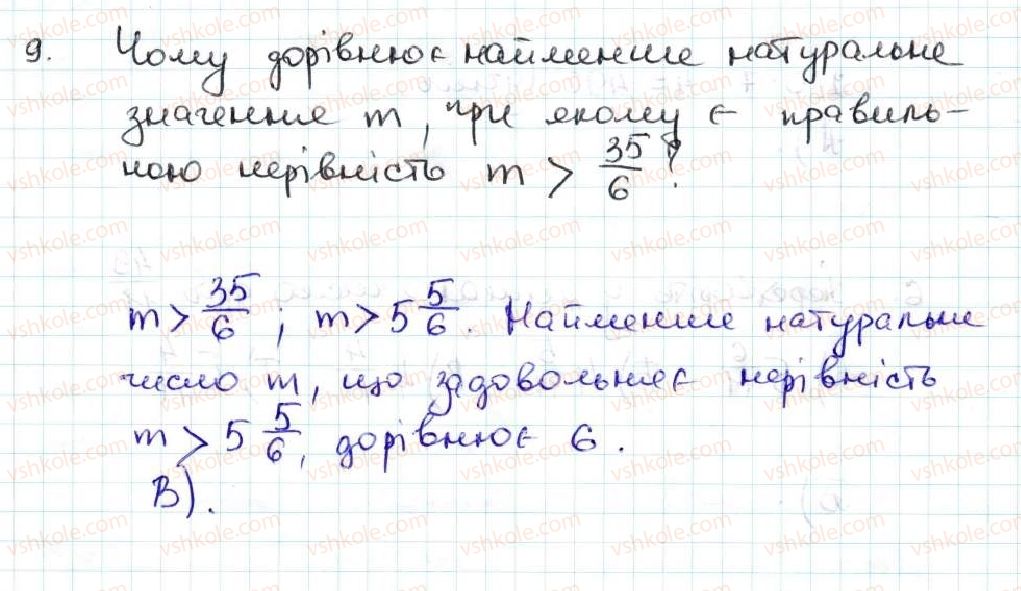 9. Чому дорівнює найменше натуральне
значення m, при якому є правиль-
ною нерівність m > 35/6?
m > 35/6; m > 5 5/6. Найменше натуральне
число m, що задовольняє нерівність
m > 5 5/6, дорівнює 6.
В).